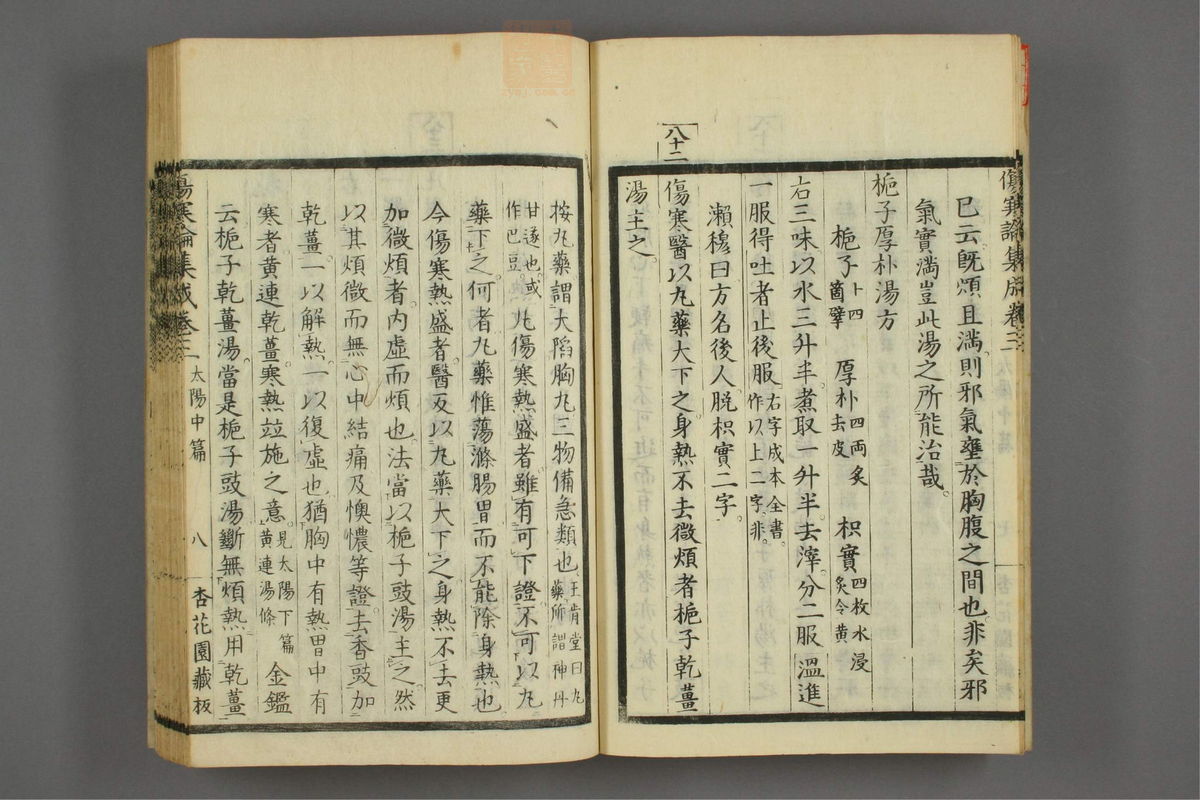 傷寒論集成卷三
巳云既煩且滿則邪氣壅於胸腹之間也非矣邪
氣實滿豈此湯之所能治哉。
梔子厚朴湯方
梔子十四箇擘 厚朴四兩炙去皮 枳實四枚水浸炙令黃
右三味以水三升半煮取一升半去滓分二服溫進
一服得吐者止後服右字成本全書作以上二字非。
瀨穆曰方名後人脫枳實二字。
八十二
傷寒醫以丸藥大下之身熱不去微煩者梔子乾薑
湯主之。
按丸藥謂大陷胸丸三物備急類也王肯堂曰丸藥所謂神丹
甘遂也或作巴豆。凡傷寒熱盛者雖有可下證不可以丸
藥下之。何者丸藥惟蕩滌腸胃而不能除身熱也
今傷寒熱盛者醫反以丸藥大下之身熱不去更
加微煩者內虛而煩也法當以梔子豉湯主之然
以其煩微而無心中結痛及懊憹等證去香豉加
乾薑一以解熱一以復虛也猶胸中有熱胃中有
寒者黃連乾薑寒熱竝施之意見太陽下篇黃連湯條金鑑
云梔子乾薑湯當是梔子豉湯斷無煩熱用乾薑
傷寒論集成卷三 太陽中篇 八 杏花園藏板